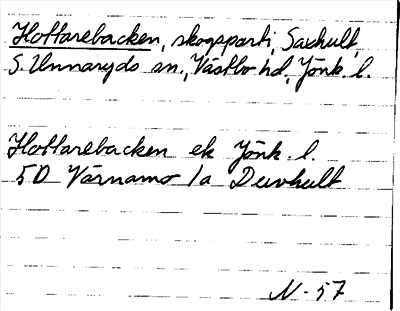 Hottarebacken, skogsparti, Saxhult,
S. Unnaryds sn., Västbo hd, Jönk. l.
Hottarebacken ek Jönk. l.
5D Värnamo 1a Duvhult
N-57